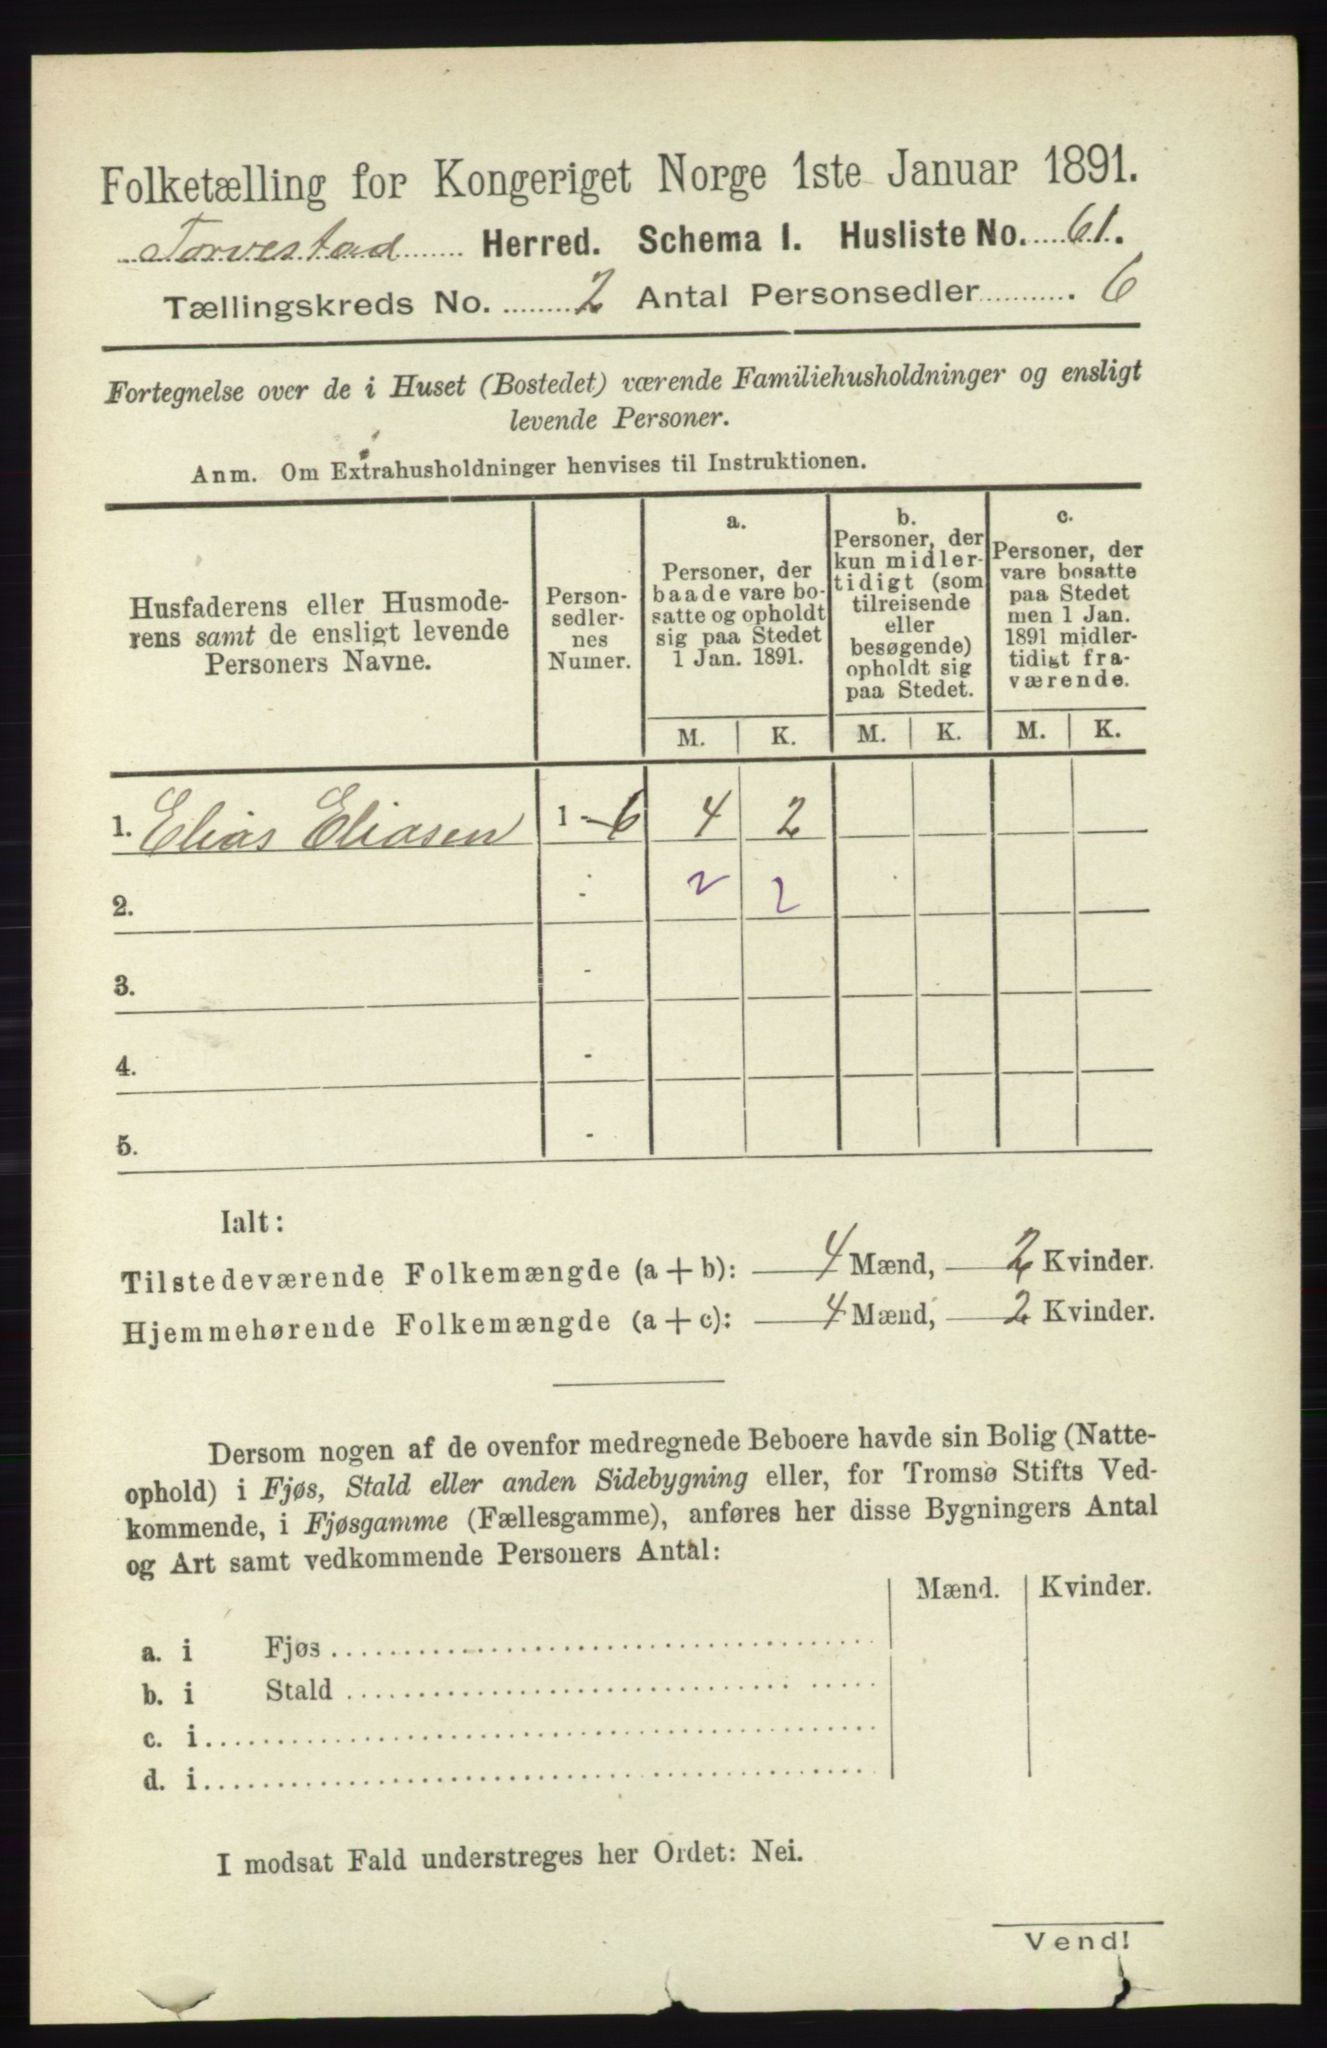 Folketælling for Kongeriget Norge 1ste Januar 1891.
Torvestad Herred. Schema I. Husliste No. 61.
Tællingskreds No. 2 Antal Personsedler 6
Fortegnelse over de i Huset (Bostedet) værende Familiehusholdninger og ensligt
levende Personer.
Anm. Om Extrahusholdninger henvises til Instruktionen.
Husfaderens eller Husmode-
rens samt de ensligt levende
Personers Navne.
Person-
sedler-
nes
Numer.
a.
Personer, der
baade vare bo-
satte og opholdt
sig paa Stedet
1 Jan. 1891.
b.
Personer, der
kun midler-
tidigt (som
tilreisende
eller
besøgende)
opholdt sig
paa Stedet.
c.
Personer, der
vare bosatte
paa Stedet
men 1 Jan.
1891 midler-
tidigt fra-
værende.
M. K. M. K. M. K.
1. Elias Eliasen 1 - 6 4 2
2. - 2 2
3. -
4. -
5. -
Ialt:
Tilstedeværende Folkemængde (a + b): 4 Mænd, 2 Kvinder.
Hjemmehørende Folkemængde (a + c): 4 Mænd, 2 Kvinder.
Dersom nogen af de ovenfor medregnede Beboere havde sin Bolig (Natte-
ophold) i Fjøs, Stald eller anden Sidebygning eller, for Tromsø Stifts Ved-
kommende, i Fjøsgamme (Fællesgamme), anføres her disse Bygningers Antal
og Art samt vedkommende Personers Antal:
Mænd. Kvinder.
a. i Fjøs
b. i Stald
c. i
d. i
I modsat Fald understreges her Ordet: Nei.
Vend!